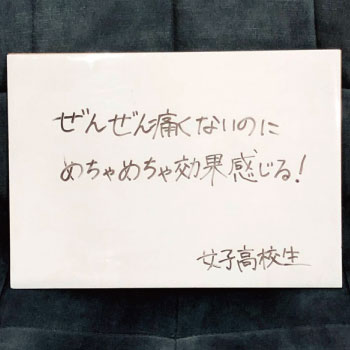 ぜんぜん痛くないのに
めちゃめちゃ効果感じる!
女子高校生